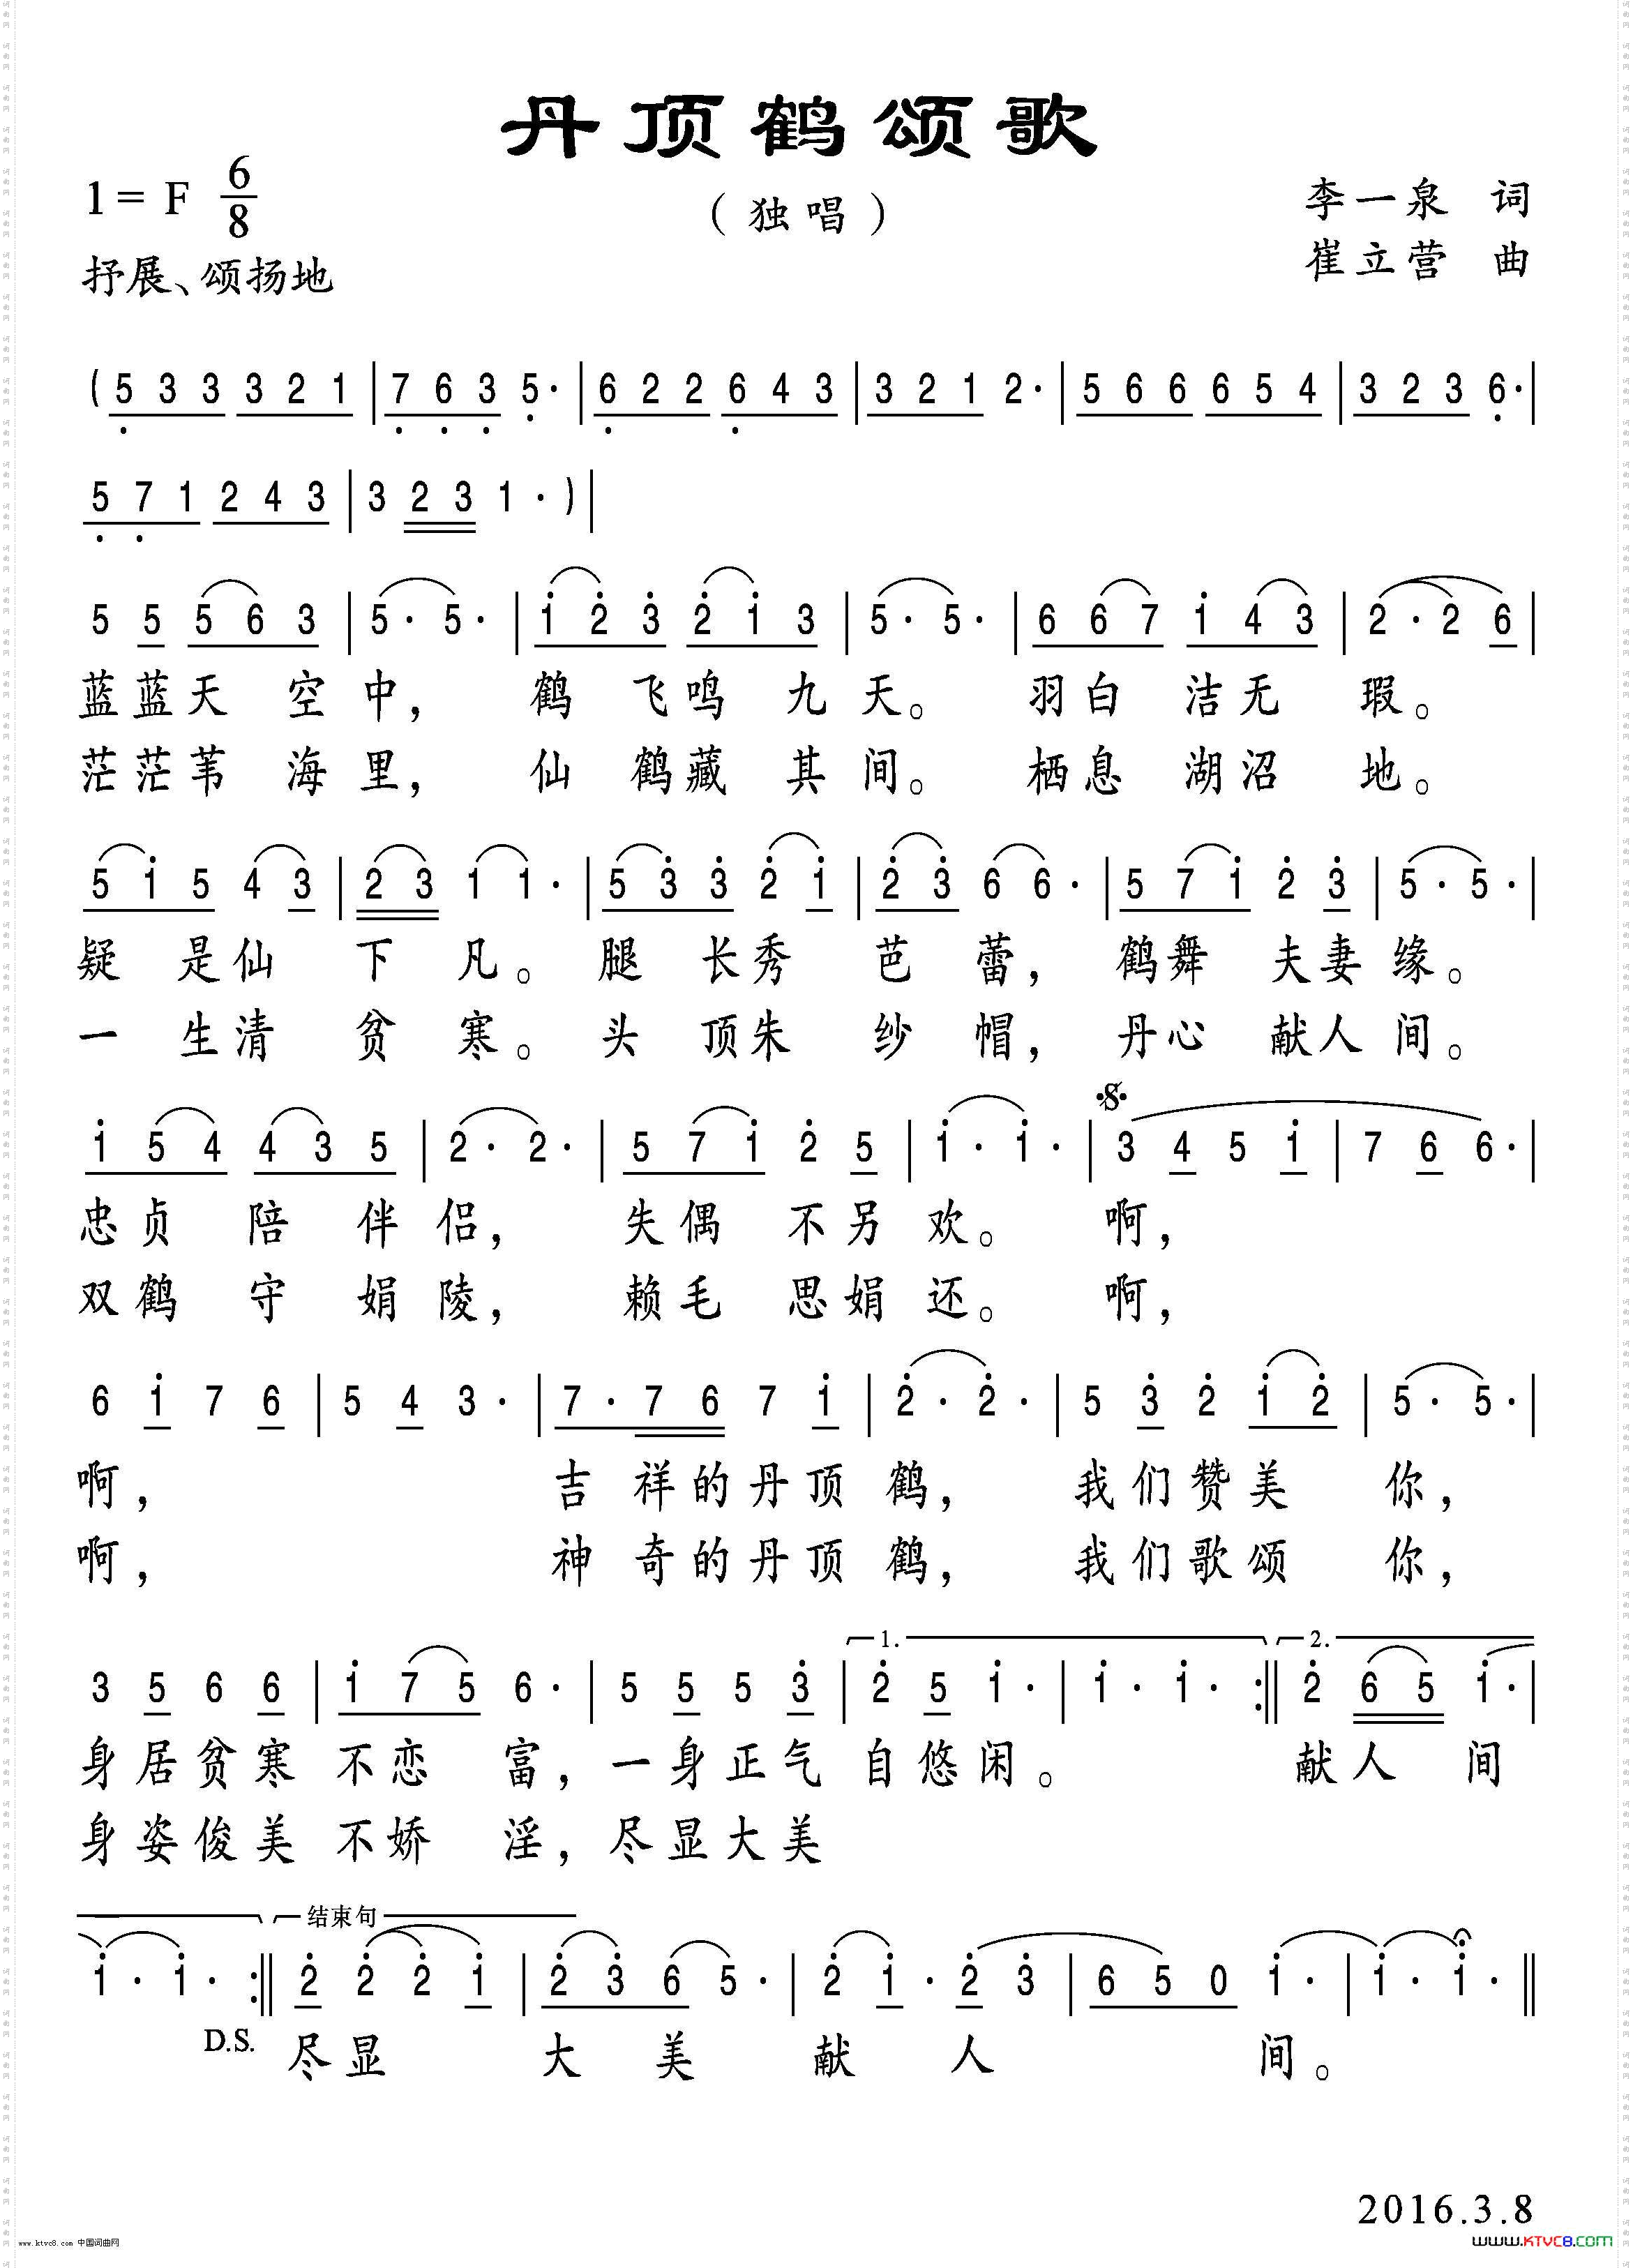 丹顶鹤颂歌
1= F 6/8
（独唱）
李一泉 词
抒展、颂扬地
崔立营 曲
( 5̣ 3 3 3 2 1 | 7̣ 6̣ 3̣ 5̣· | 6̣ 2 2 6̣ 4 3 | 3 2 1 2· | 5 6 6 6 5 4 | 3 2 3 6̣· |
5̣ 7̣ 1 2 4 3 | 3 2 3 1· ) |
5 5 5 6 3 | 5· 5· | 1̇ 2̇ 3̇ 2̇ 1̇ 3 | 5· 5· | 6 6 7 1̇ 4 3 | 2· 2 6 |
蓝蓝天 空中， 鹤 飞鸣 九天。 羽白 洁无 瑕。
茫茫苇 海里， 仙 鹤藏 其间。 栖息 湖沼 地。
5 1̇ 5 4 3 | 2 3 1 1· | 5 3̇ 3̇ 2̇ 1̇ | 2̇ 3̇ 6 6· | 5 7 1̇ 2̇ 3̇ | 5· 5· |
疑 是仙 下 凡。 腿 长秀 芭 蕾， 鹤舞 夫妻缘。
一 生清 贫 寒。 头 顶朱 纱 帽， 丹心 献人间。
1̇ 5 4 4 3 5 | 2· 2· | 5 7 1̇ 2̇ 5 | 1̇· 1̇· | 𝄋 3 4 5 1̇ | 7 6 6· |
忠贞 陪 伴 侣， 失偶 不另 欢。 啊，
双鹤 守 娟 陵， 赖毛 思娟 还。 啊，
6 1̇ 7 6 | 5 4 3· | 7· 7 6 7 1̇ | 2̇· 2̇· | 5 3̇ 2̇ 1̇ 2̇ | 5· 5· |
啊， 吉 祥的丹顶 鹤， 我们赞美 你，
啊， 神 奇的丹顶 鹤， 我们歌颂 你，
1. 2.
3 5 6 6 | 1̇ 7 5 6· | 5 5 5 3̇ | 2̇ 5 1̇· | 1̇· 1̇· :‖ 2̇ 6 5 1̇· |
身居贫寒 不恋 富，一身正气 自悠闲。 献人 间
身姿俊美 不娇 淫，尽显大美
结束句
1̇· 1̇· :‖ 2̇ 2̇ 2̇ 1̇ | 2̇ 3̇ 6 5· | 2̇ 1̇· 2̇ 3̇ | 6 5 0 1̇· | 1̇· 1̇· ‖
D.S. 尽显 大 美 献 人 间。
2016.3.8
www.ktvc8.com 中国词曲网
www.KTVC8.com